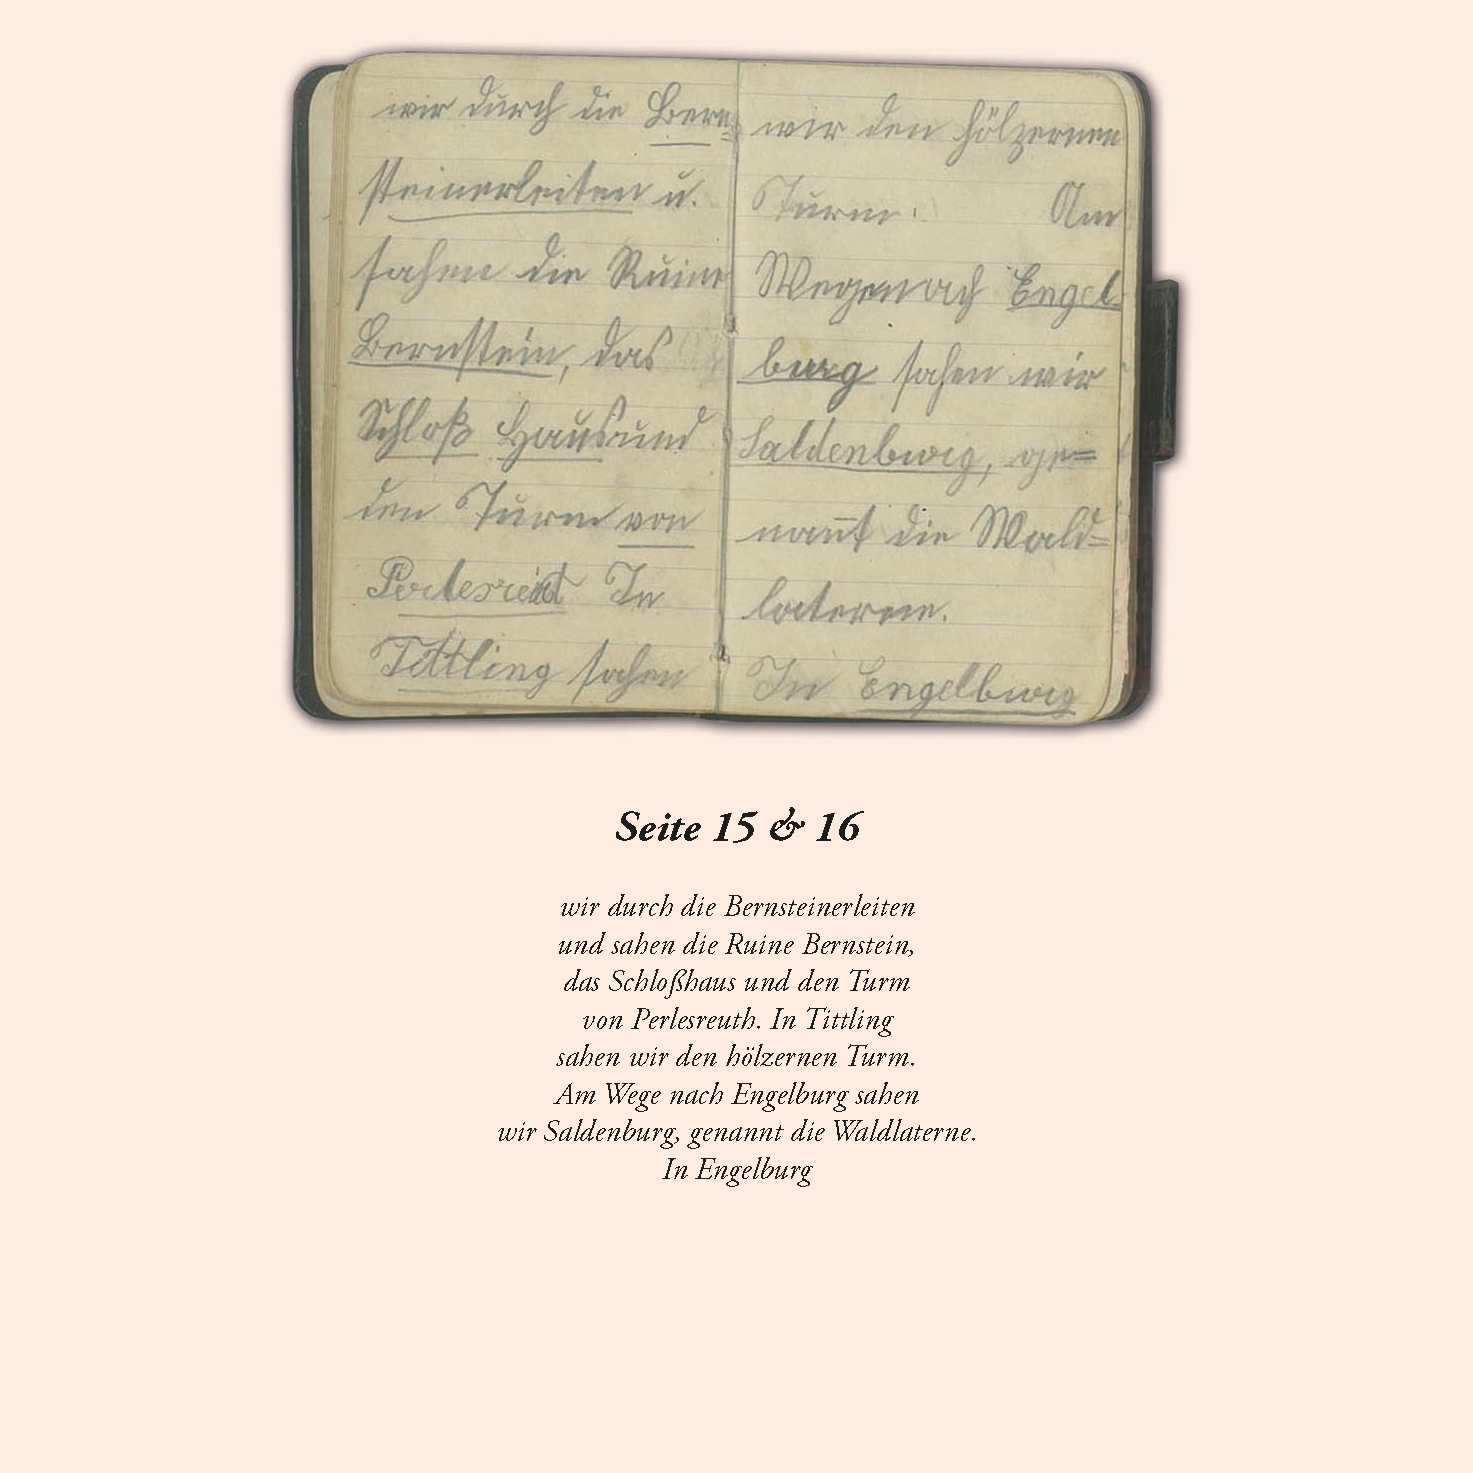 wir durch die Bern=
steinerleiten u.
sahen die Ruine
Bernstein, das
Schloß Haus und
den Turm von
In
Tittling sahen
wir den hölzernen
Turm. Am
Wege nach Engel-
burg sahen wir
Saldenburg, ge=
nan̄t die Wald=
laterne.
In Engelburg
Seite 15 & 16
wir durch die Bernsteinerleiten
und sahen die Ruine Bernstein,
das Schloßhaus und den Turm
von Perlesreuth. In Tittling
sahen wir den hölzernen Turm.
Am Wege nach Engelburg sahen
wir Saldenburg, genannt die Waldlaterne.
In Engelburg